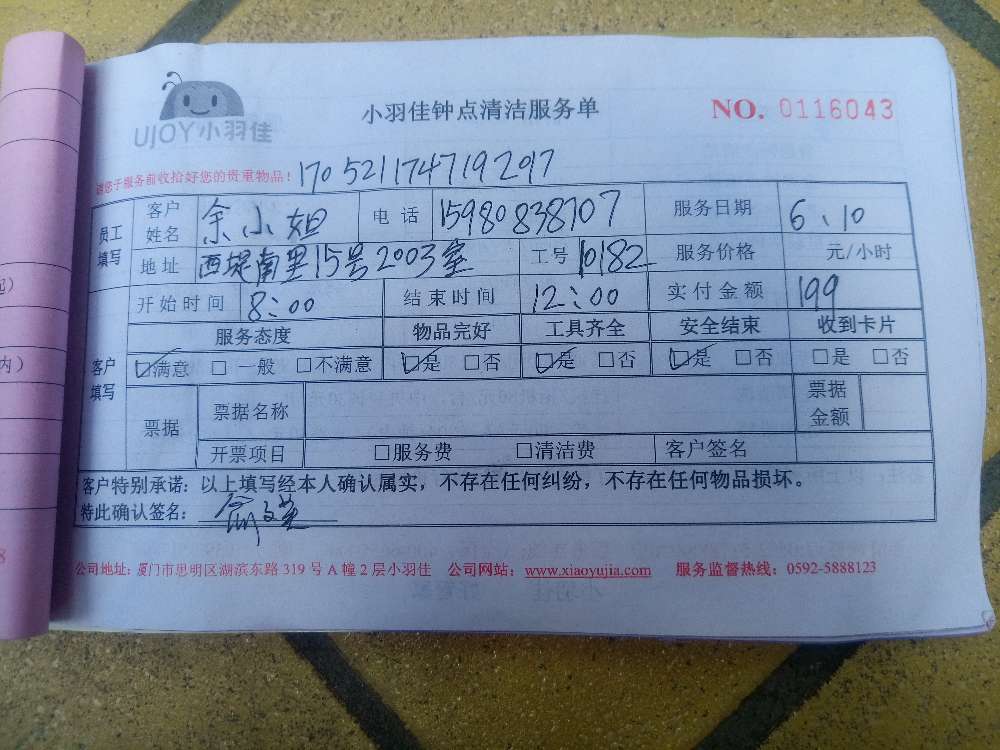 UJOY小羽佳
小羽佳钟点清洁服务单
NO. 0116043
请您于服务前收拾好您的贵重物品！ 170521174719297
员工填写 客户姓名 余小姐 电话 15980838707 服务日期 6、10
地址 西堤南里15号2003室 工号 10182 服务价格 元/小时
开始时间 8：00 结束时间 12：00 实付金额 199
客户填写 服务态度 物品完好 工具齐全 安全结束 收到卡片
☑满意 □ 一般 □不满意 ☑是 □否 ☑是 □否 ☑是 □否 □是 □否
票据 票据名称 票据金额
开票项目 □服务费 □清洁费 客户签名
客户特别承诺：以上填写经本人确认属实，不存在任何纠纷，不存在任何物品损坏。
特此确认签名：
公司地址：厦门市思明区湖滨东路 319 号 A 幢 2 层小羽佳 公司网站：www.xiaoyujia.com 服务监督热线：0592-5888123
内）